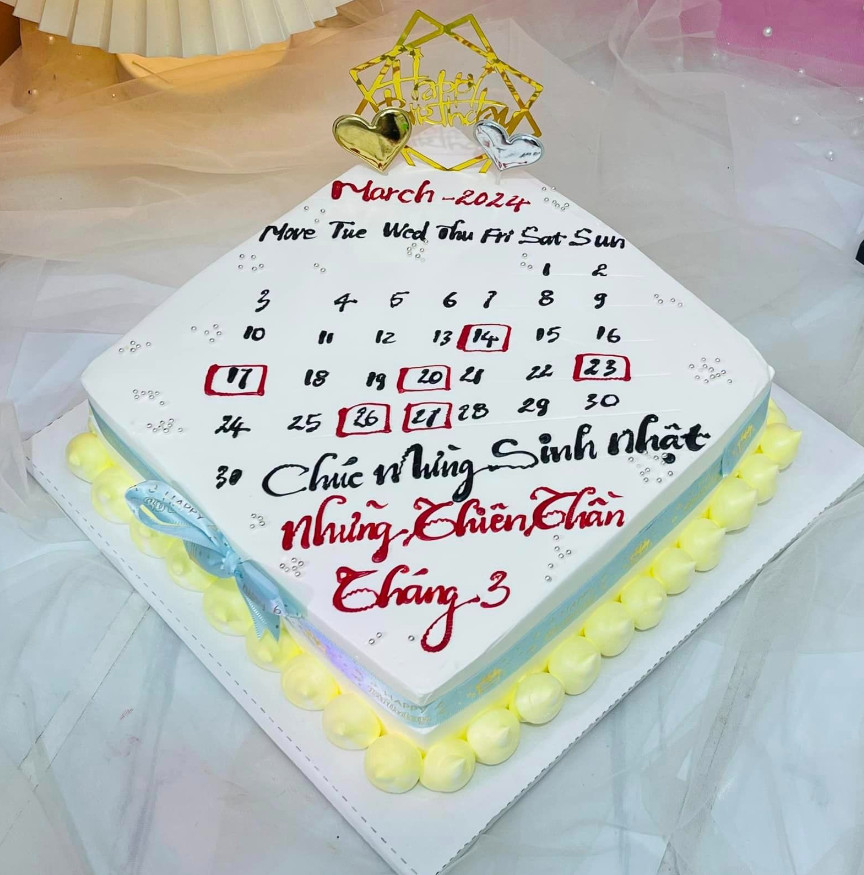 Happy
Birthday
March - 2024
Move Tue Wed Thu Fri Sat Sun
1 2
3 4 5 6 7 8 9
10 11 12 13 14 15 16
17 18 19 20 21 22 23
24 25 26 27 28 29 30
30 Chúc Mừng Sinh Nhật
Những Thiên Thần
Tháng 3
HAPPY
HAPPY